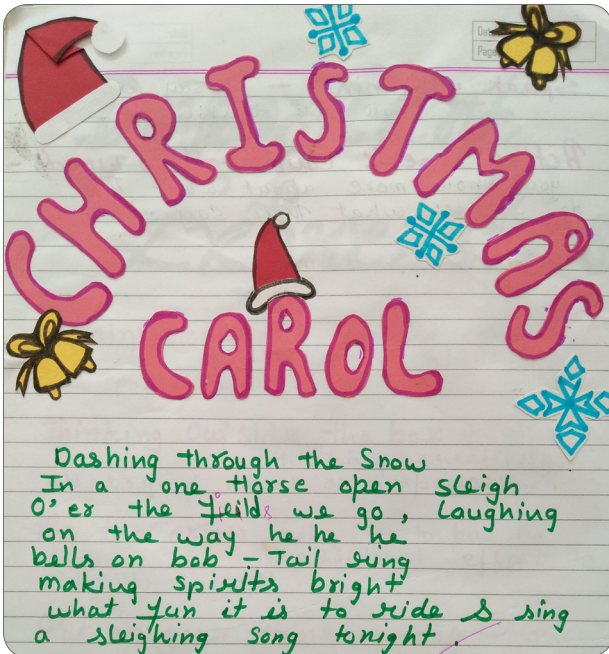 CHRISTMAS
CAROL
Dashing through the Snow
In a one Horse open sleigh
O'er the feilds we go, Laughing
on the way he he he
bells on bob - Tail ring
making spirits bright
what fun it is to ride & sing
a sleighing song tonight.